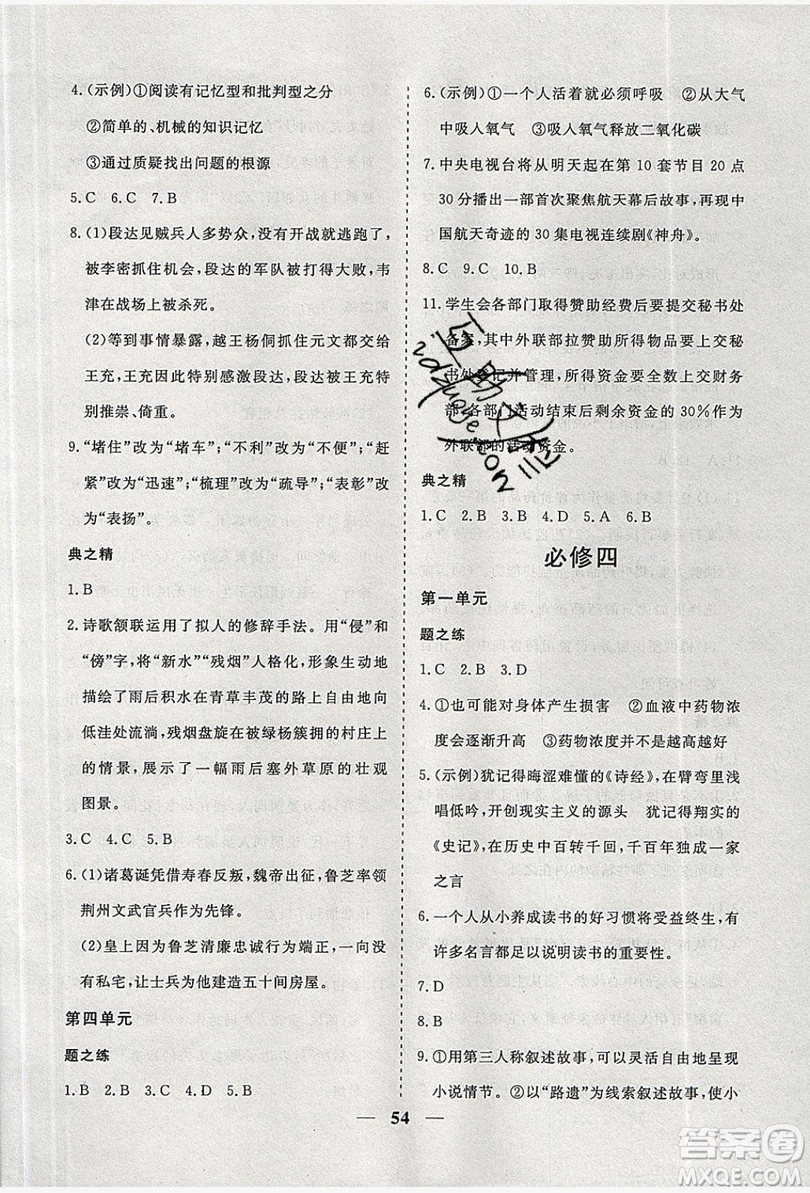 4.(示例)①阅读有记忆型和批判型之分
②简单的、机械的知识记忆
③通过质疑找出问题的根源
5.C 6.C 7.B
8.(1)段达见贼兵人多势众,没有开战就逃跑了,
被李密抓住机会,段达的军队打得大败,韦
津在战场上被杀死。
(2)等到事情暴露,越王杨侗抓住元文都交给
王充,王充因此特别感激段达,段达被王充特
别推崇、倚重。
9.“堵住”改为“堵车”;“不利”改为“不便”;“赶
紧”改为“迅速”;“梳理”改为“疏导”;“表彰”改
为“表扬”。
典之精
1.B
2.诗歌颔联运用了拟人的修辞手法。用“侵”和
“傍”字,将“新水”“残烟”人格化,形象生动地
描绘了雨后积水在青草丰茂的路上自由地向
低洼处流淌,残烟盘旋在被绿杨簇拥的村庄上
方,展示了一幅雨后塞外草原的壮观
图景。
3.C 4.C 5.B
6.(1)诸葛诞凭借寿春反叛,魏帝出征,鲁芝率领
荆州文武官兵作为先锋。
(2)皇上因为鲁芝清廉忠诚行为端正,一向没
有私宅,让士兵为他建造五十间房屋。
第四单元
题之练
1.B 2.B 3.C 4.D 5.B
6.(示例)①一个人活着就必须呼吸 ②从大气
中吸人氧气 ③吸人氧气释放二氧化碳
7.中央电视台将从明天起在第 10 套节目 20 点
30 分播出一部首次聚焦航天幕后故事,再现中
国航天奇迹的 30 集电视连续剧《神舟》。
8.C 9.C 10.B
11.学生会各部门取得赞助经费后要提交秘书处
备案,其中外联部拉赞助所得物品要上交秘
书处登记并管理,所得资金要全数上交财务
部,各部门活动结束后剩余资金的 30%作为
外联部的活动资金。
典之精
1.C 2.B 3.B 4.D 5.A 6.B
必修四
第一单元
题之练
1.C 2.B 3.D
4.①也可能对身体产生损害 ②血液中药物浓
度会逐渐升高 ③药物浓度不是越高越好
5.(示例)犹记得晦涩难懂的《诗经》,在臂弯里浅
唱低吟,开创现实主义的源头 犹记得翔实的
《史记》,在历史中百转千回,千百年独成一家
之言
6.一个人从小养成读书的好习惯将受益终生,有
许多名言都足以说明读书的重要性。
7.D
8.B
9.①使用第三人称叙述故事,可以灵活自由地呈现
小说情节。②以“路遗”为线索叙述故事,使小
54
答案圈
MXQE.COM